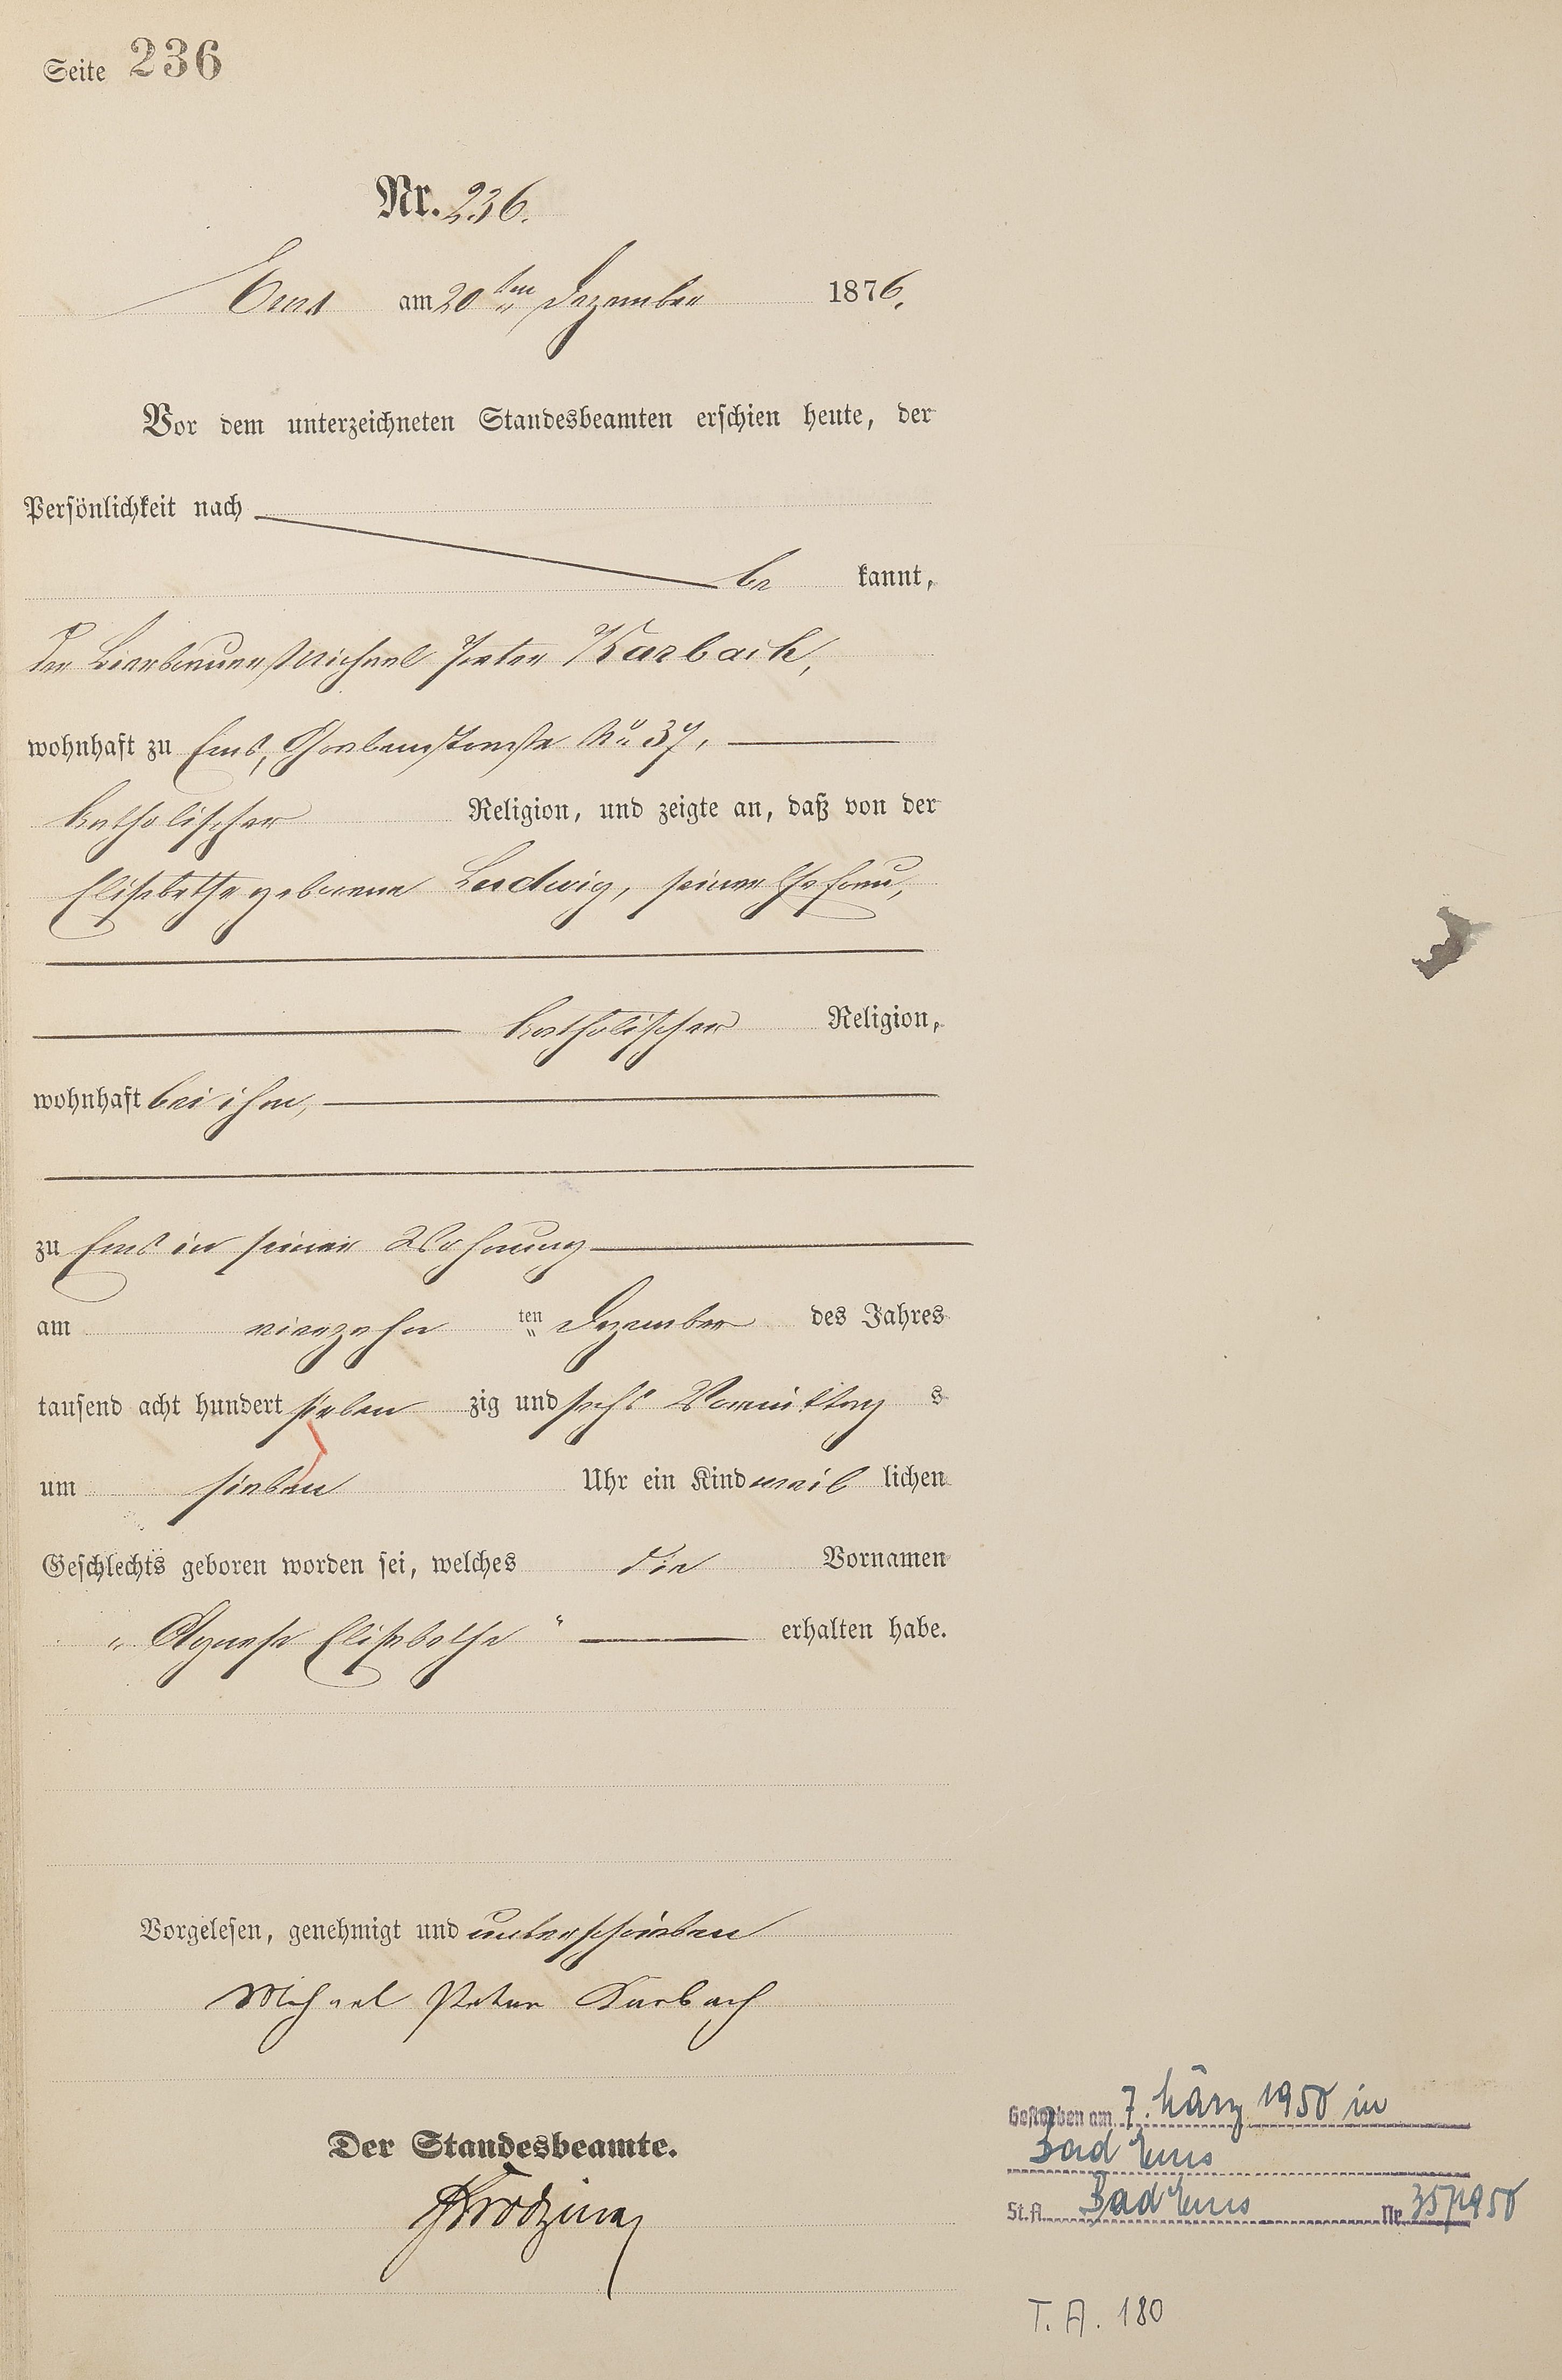 Seite 236
Nr. 236.
Ems am 20ten Dezember 1876.
Vor dem unterzeichneten Standesbeamten erschien heute, der
Persönlichkeit nach
be kannt,
der Bierbrauer Michael Peter Karbach,
wohnhaft zu Ems, Grabenstraße No 37,
katholischer Religion, und zeigte an, daß von der
Elisabethe geborene Ludwig, seiner Ehefrau,
katholischer Religion,
wohnhaft bei ihm,
zu Ems in seiner Wohnung
am vierzehn ten Dezember des Jahres
tausend acht hundert sieben zig und sechs Vormittag s
um sieben Uhr ein Kind weib lichen
Geschlechts geboren worden sei, welches die Vornamen
„Agnese Elisabethe“ erhalten habe.
Vorgelesen, genehmigt und unterschrieben
Michael Peter Karbach
Der Standesbeamte.
Gestorben am 7. März 1950 in
Bad Ems
St. A. Bad Ems Nr. 35/1950
T. A. 180